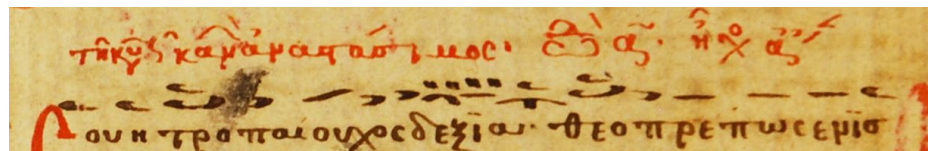 τῆ κυ κανὼ ἀναστάσιμος· ᾠδ α· ἦχο α
Σου η τροπαιουχος δεξια· θεοπρεπως εν ϊσ